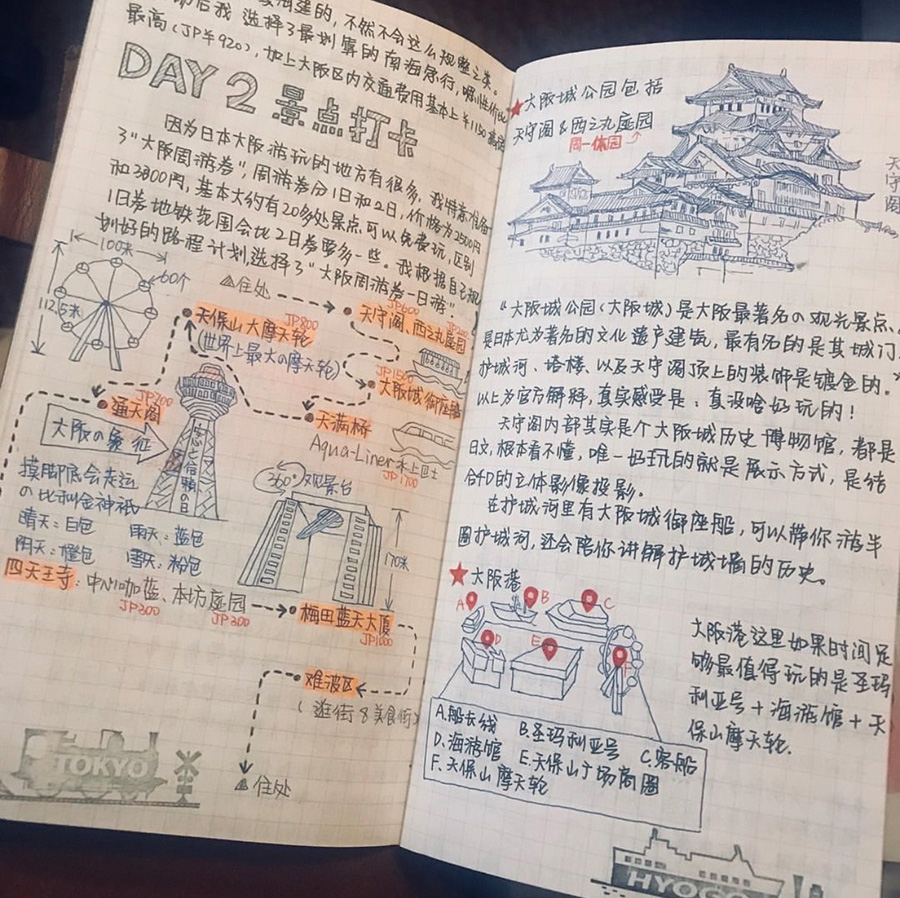 海建的，不然不会这么规整之类。
我选择了最划算的南海急行，
最高（JP¥920），加上大阪区内交通费用基本上¥1150
DAY 2 景点打卡
因为日本大阪游玩的地方有很多，我特意准备
了"大阪周游券"，周游券分1日和2日，价格为2500円
和3300円，基本大约有20多处景点可以免费玩，区别
1日券地铁范围会比2日券要多一些。我根据自己规
划好的路程计划，选择了"大阪周游券一日游"。
100米
60个
112.5米
住处
天守阁、西之丸庭园
JP600
JP800
天保山大摩天轮
（世界上最大の摩天轮）
JP1500
大阪城御座船
JP700
通天阁
大阪の象征
天满桥
Aqua-Liner水上巴士
JP1700
摸脚底会走运
の比利金神祇
晴天：白色 雨天：蓝色
阴天：橙色 雪天：粉色
360°观景台
170米
四天王寺：中心伽蓝、本坊庭园
JP300 JP300
梅田蓝天大厦
JP1000
难波区
（逛街&美食街）
住处
TOKYO
大阪城公园包括
天守阁&西之丸庭园
周一休园
天守阁
"大阪城公园（大阪城）是大阪最著名の观光景点、
是日本尤为著名的文化遗产建筑，最有名的是其城门、
护城河、塔楼、以及天守阁顶上的装饰是镀金的。"
以上为官方解释，真实感受是、真没啥好玩的！
天守阁内部其实是个大阪城历史博物馆，都是
日文，根本看不懂，唯一好玩的就是展示方式，是结
合D的立体影像投影。
在护城河里有大阪城御座船，可以带你游半
圈护城河，还会陪你讲解护城墙的历史。
大阪港
A B C D E F
A.船长线 B.圣玛利亚号 C.客船
D.海游馆 E.天保山广场商圈
F.天保山摩天轮
大阪港这里如果时间足
够最值得玩的是圣玛
利亚号+海游馆+天
保山摩天轮.
HYOGO